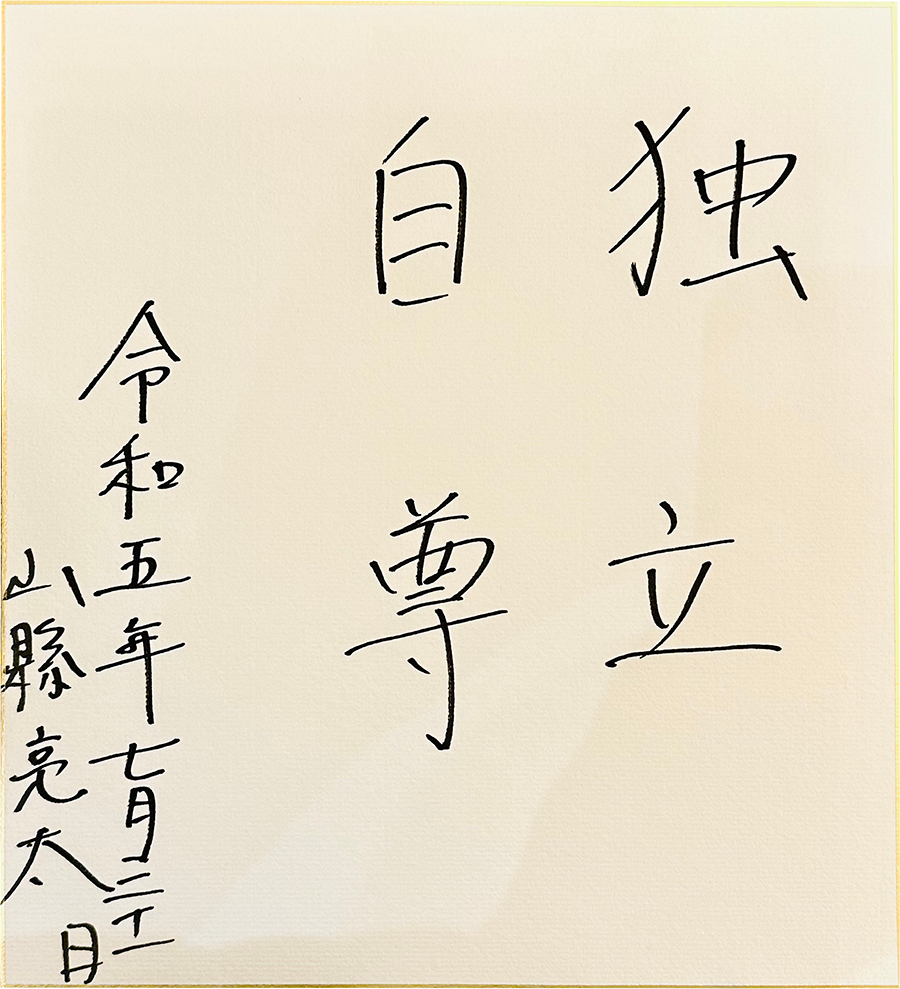 独立
自尊
令和五年七月二十一日
山縣亮太